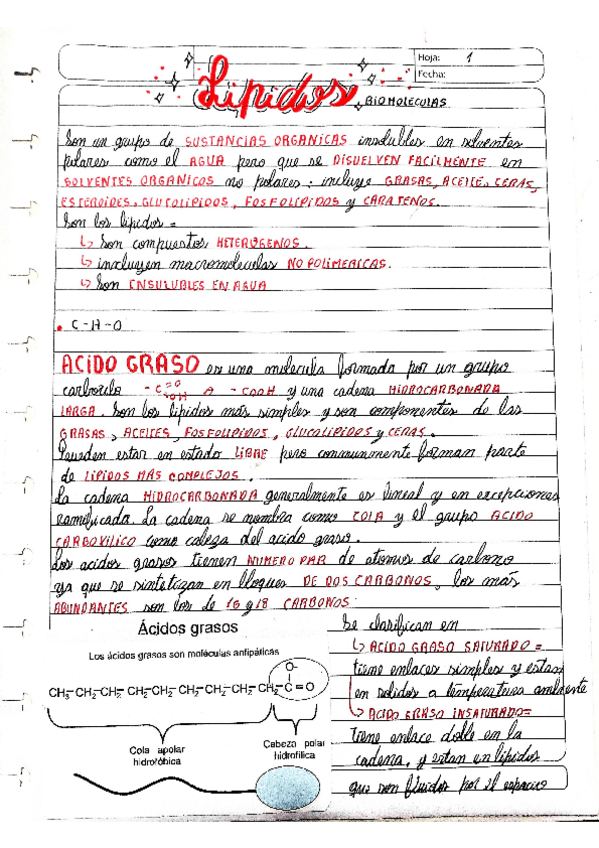 Hoja: 1
Fecha:
Lípidos, BIOMOLECULAS
Son un grupo de SUSTANCIAS ORGANICAS insolubles en solventes
polares como el AGUA pero que se DISUELVEN FACILMENTE en
SOLVENTES ORGANICOS no polares: incluye GRASAS, ACEITE, CERAS,
ESTEROIDES, GLUCOLIPIDOS, FOSFOLIPIDOS y CARATENOS.
Son los lipidos =
↳ Son compuestos HETEROGENOS.
↳ incluyen macromoleculas NO POLIMERICAS.
↳ Son INSULUBLES EN AGUA
• C-H-O
ACIDO GRASO es una molecula formada por un grupo
carboxilo -C=O OH A -COOH y una cadena HIDROCARBONADA
LARGA. Son los lipidos más simples y son componentes de las
GRASAS, ACEITES, FOSFOLIPIDOS, GLUCOLIPIDOS y CERAS.
Pueden estar en estado LIBRE pero communmente forman parte
de LIPIDOS MAS COMPLEJOS.
La cadena HIDROCARBONADA generalmente es lineal y en excepciones
ramificada. La cadena se nombra como COLA y el grupo ACIDO
CARBOXILICO como cabeza del acido graso.
Los acidos grasos tienen NUMERO PAR de atomos de carbono
ya que se sintetizan en bloques DE DOS CARBONOS, los más
ABUNDANTES son los de 16 y 18 CARBONOS.
Ácidos grasos
Los ácidos grasos son moléculas antipáticas
O-
CH3-CH2-CH2-CH2-CH2-CH2-CH2-CH2-CH2-C=O
Cola apolar
hidrofóbica
Cabeza polar
hidrifílica
Se clasifican en
↳ ACIDO GRASO SATURADO =
tiene enlaces simples y estan
en solidos a temperatura ambiente
↳ ACIDO GRASO INSATURADO=
tiene enlace doble en la
cadena, y estan en lipidos
que son fluidos por el espacio